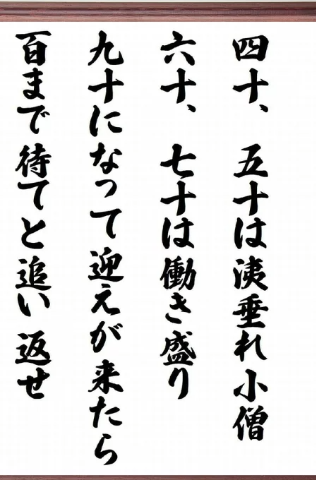 四十、五十は洟垂れ小僧
六十、七十は働き盛り
九十になって迎えが来たら
百まで待てと追い返せ